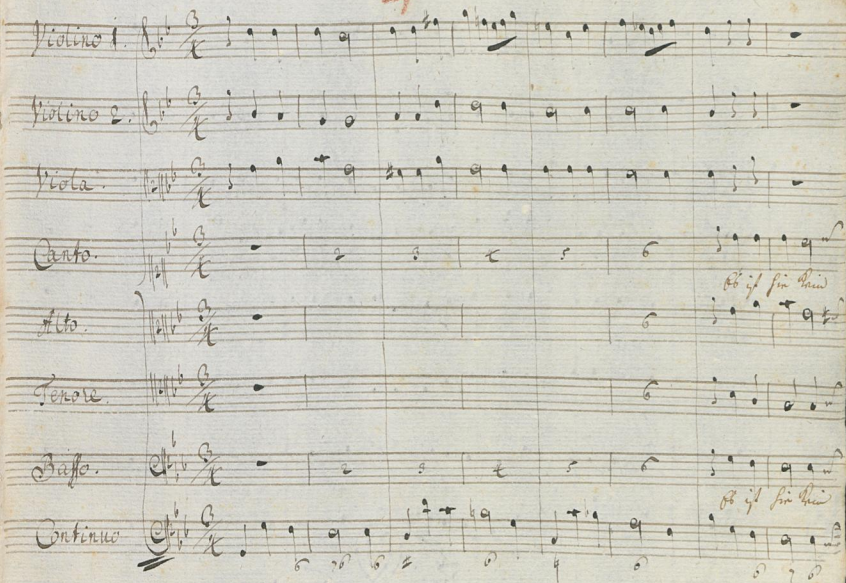 Violino 1.
Violino 2.
Viola.
Canto.
2 3 4 5 6
Es ist hie kein
Alto.
6
Tenore.
6
Basso.
2 3 4 5 6
Es ist hie kein
Continuo